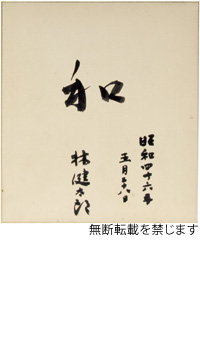 和
昭和四十六年
五月二十八日
林健太郎
無断転載を禁じます